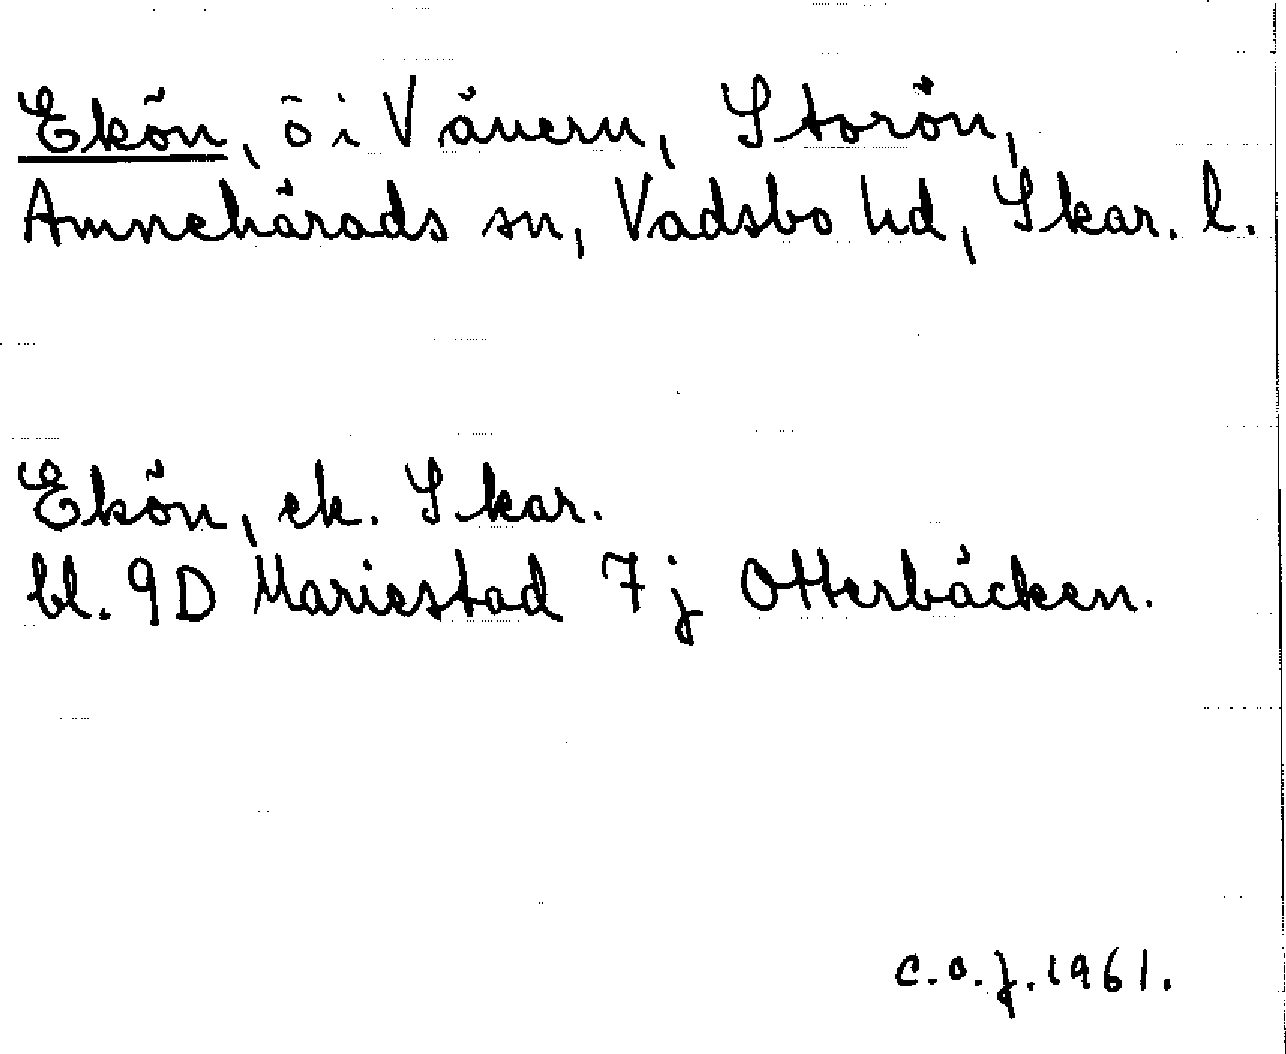 Ekön, ö i Vänern, Storön,
Amnehärads sn, Vadsbo hd, Skar. l.
Ekön, ek. Skar.
bl. 9D Mariestad 7j Otterbäcken.
c.o.j. 1961.